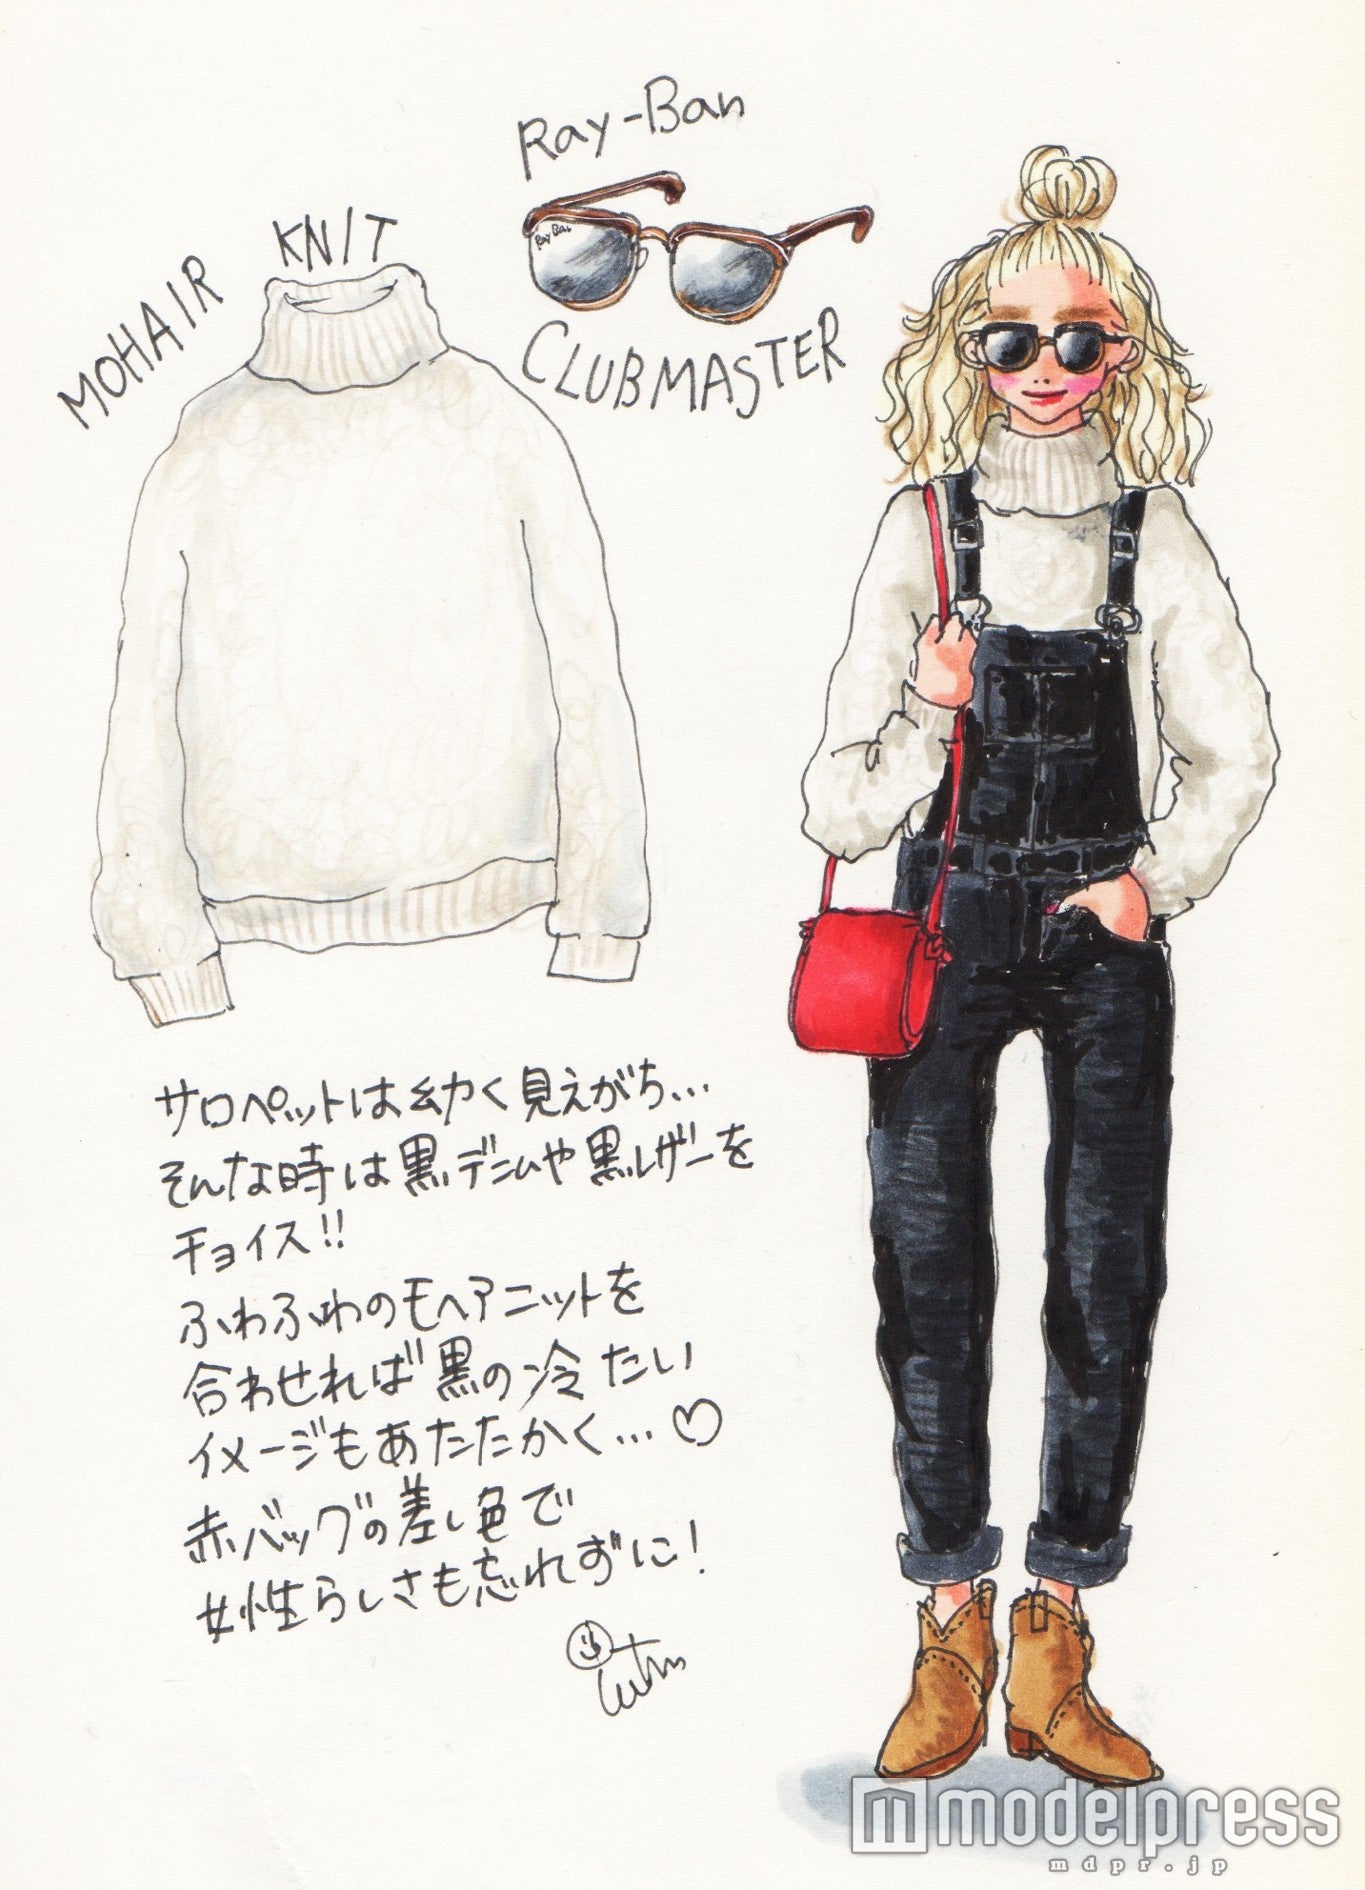 Ray-Ban
Ray Ban
CLUBMASTER
MOHAIR KNIT
サロペットは幼く見えがち...
そんな時は黒デニムや黒レザーを
チョイス!!
ふわふわのモヘアニットを
合わせれば黒の冷たい
イメージもあたたかく...♡
赤バッグの差し色で
女性らしさも忘れずに!
modelpress
mdpr.jp